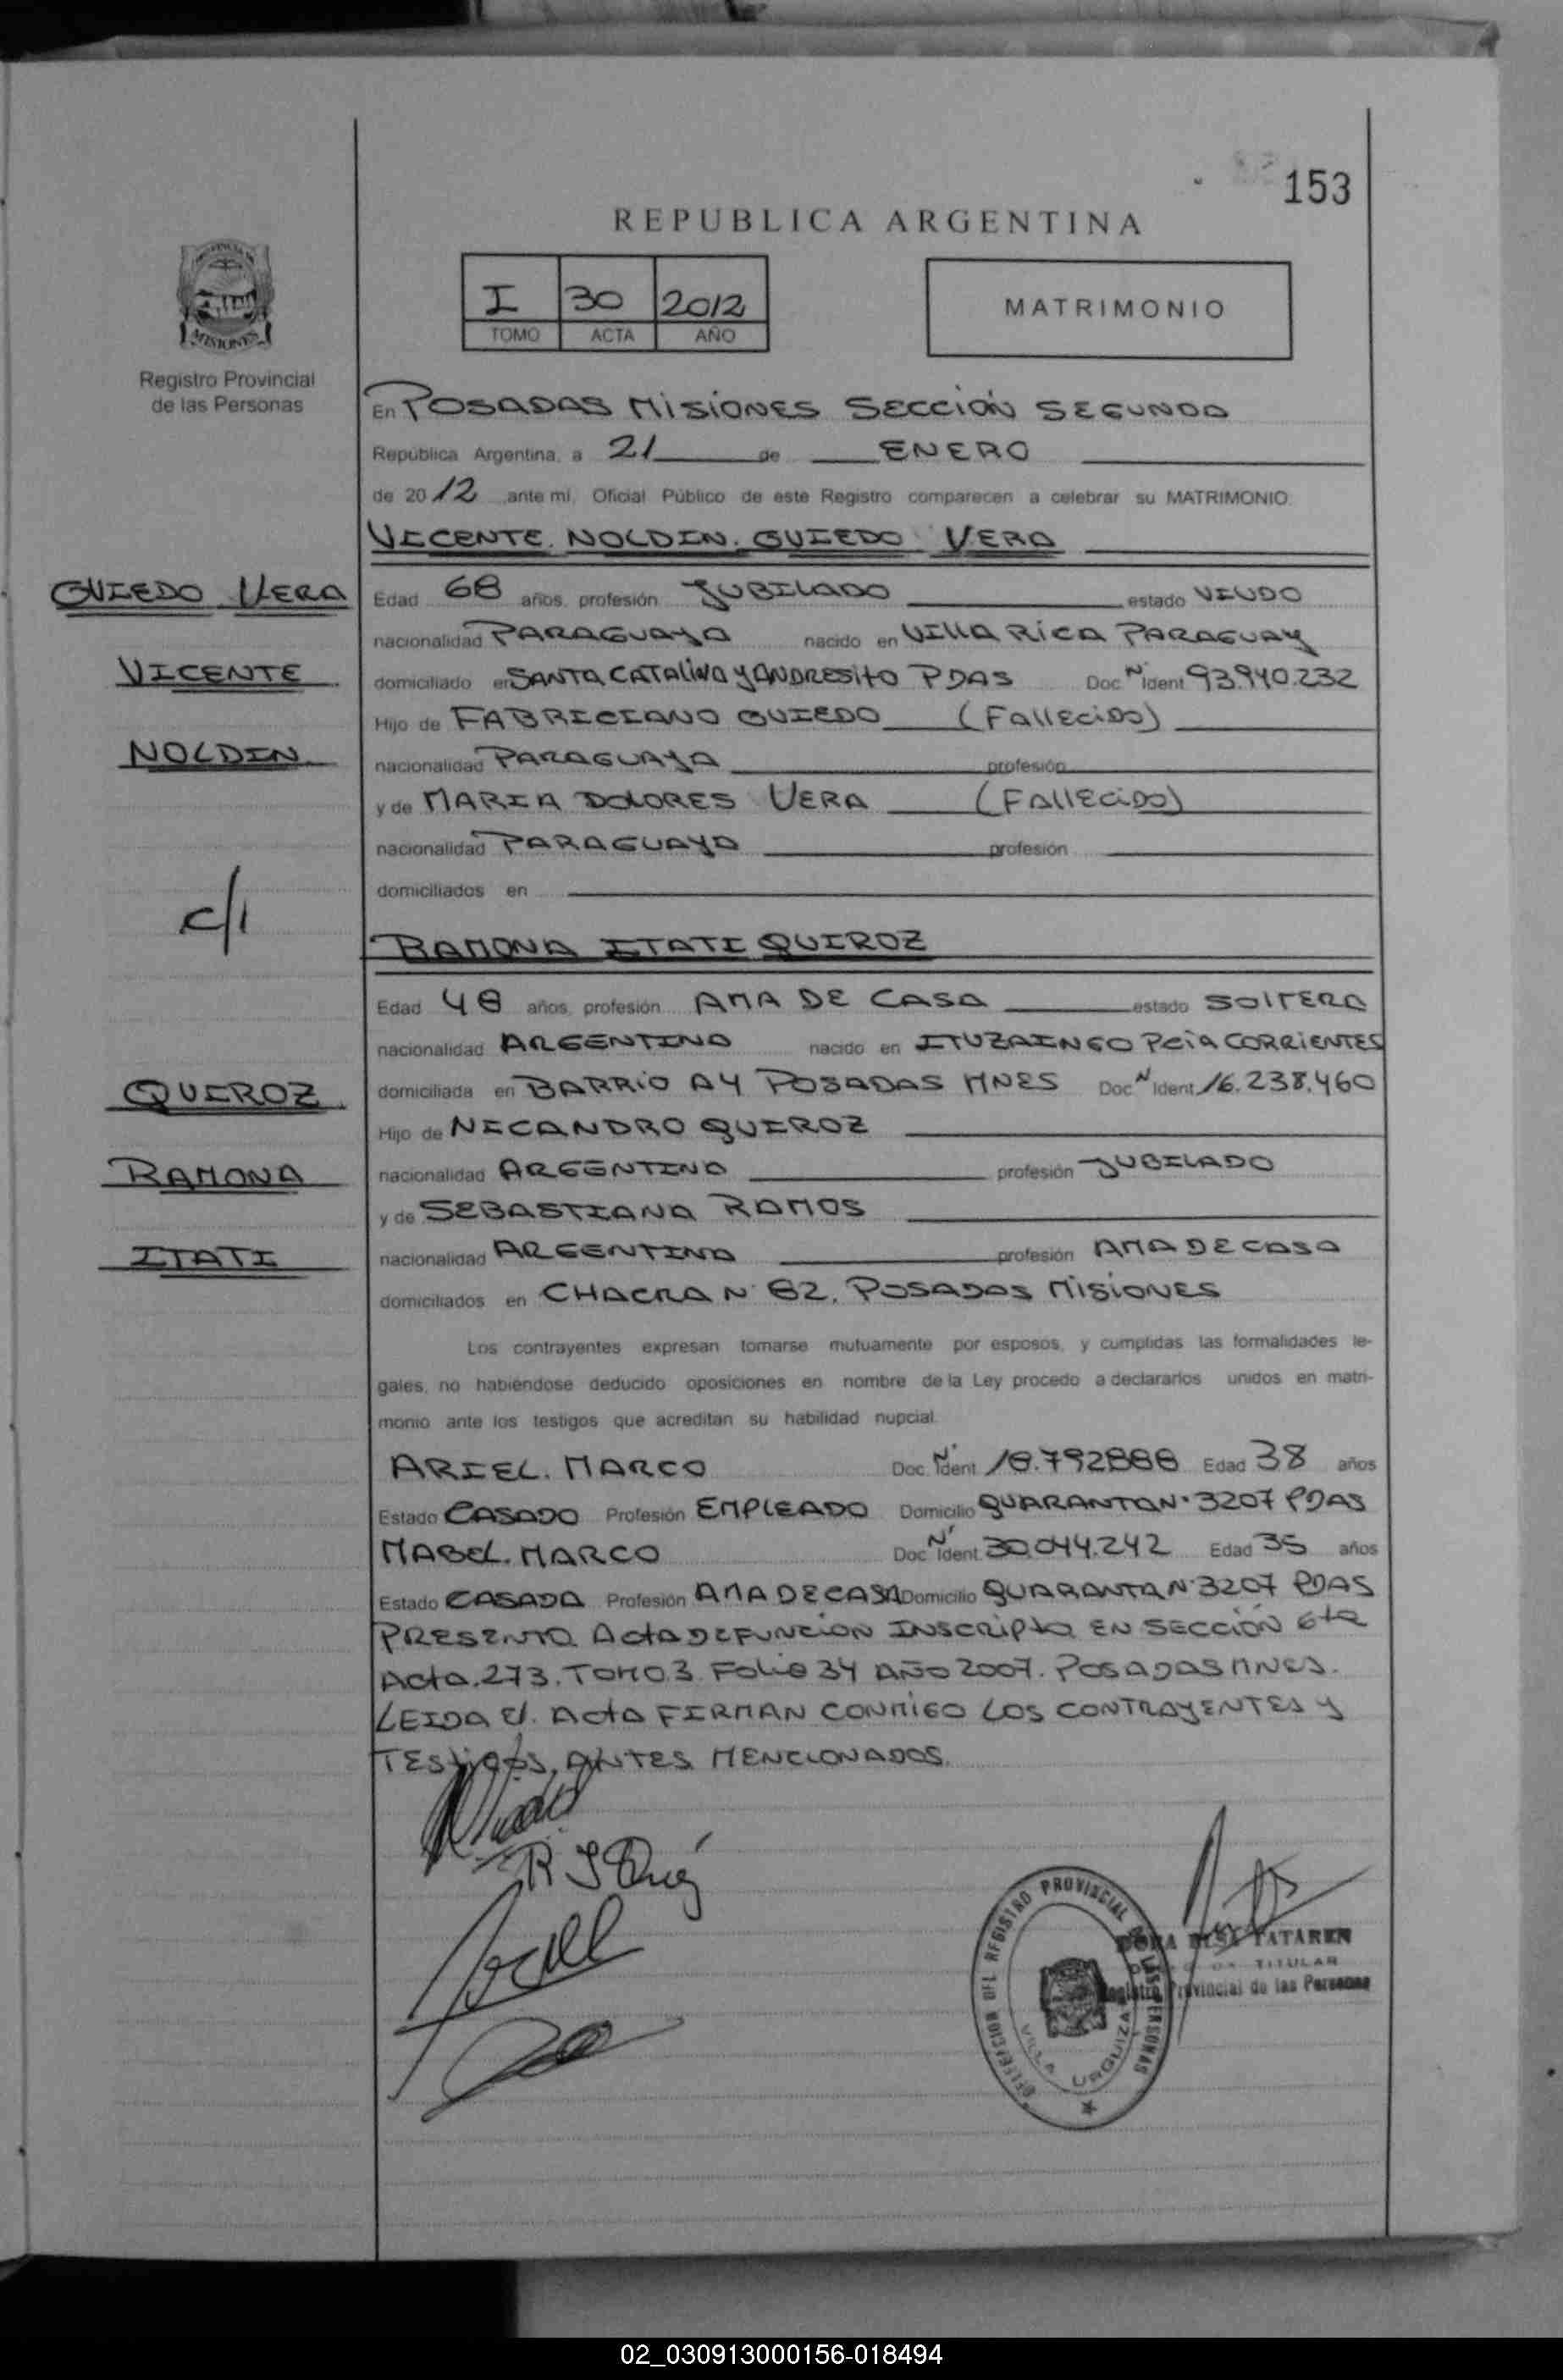 153
REPUBLICA ARGENTINA
I 30 2012
TOMO ACTA AÑO
MATRIMONIO
MISIONES
Registro Provincial
de las Personas
En POSADAS MISIONES SECCIÓN SEGUNDA
República Argentina, a 21 de ENERO
de 2012 ante mi, Oficial Público de este Registro comparecen a celebrar su MATRIMONIO
VICENTE. NOLDIN. OVIEDO VERA
OVIEDO VERA
VICENTE
NOLDIN
c/
Edad 68 años, profesión JUBILADO estado VIUDO
nacionalidad PARAGUAYA nacido en VILLA RICA PARAGUAY
domiciliado en SANTA CATALINA Y ANDRESITO PDAS Doc N° Ident 93.940.232
Hijo de FABRICIANO OVIEDO (FALLECIDO)
nacionalidad PARAGUAYA profesión
y de MARIA DOLORES VERA (FALLECIDO)
nacionalidad PARAGUAYA profesión
domiciliados en
RAMONA ITATI QUIROZ
QUIROZ
RAMONA
ITATI
Edad 48 años, profesión AMA DE CASA estado SOLTERA
nacionalidad ARGENTINA nacido en ITUZAINGO PCIA CORRIENTES
domiciliada en BARRIO A4 POSADAS MNES Doc N° Ident 16.238.460
Hijo de NICANDRO QUIROZ
nacionalidad ARGENTINA profesión JUBILADO
y de SEBASTIANA RAMOS
nacionalidad ARGENTINA profesión AMA DE CASA
domiciliados en CHACRA N° 82. POSADAS MISIONES
Los contrayentes expresan tomarse mutuamente por esposos, y cumplidas las formalidades le-
gales, no habiéndose deducido oposiciones en nombre de la Ley procedo a declararlos unidos en matri-
monio ante los testigos que acreditan su habilidad nupcial.
ARIEL. MARCO Doc. N° Ident 18.792888 Edad 38 años
Estado CASADO Profesión EMPLEADO Domicilio QUARANTA N° 3207 PDAS
MABEL. MARCO Doc N° Ident 30.044.242 Edad 35 años
Estado CASADA Profesión AMA DE CASA Domicilio QUARANTA N° 3207 PDAS
PRESENTO ACTA DEFUNCIÓN INSCRIPTA EN SECCIÓN 6ta
ACTA.273. TOMO.3. FOLIO 34 AÑO 2007. POSADAS MNES.
LEIDA EL ACTA FIRMAN CONMIGO LOS CONTRAYENTES Y
TESTIGOS, ANTES MENCIONADOS.
DEL REGISTRO PROVINCIAL DE LAS PERSONAS
VILLA URQUIZA
TATAREN
TITULAR
Registro Provincial de las Personas
02_030913000156-018494